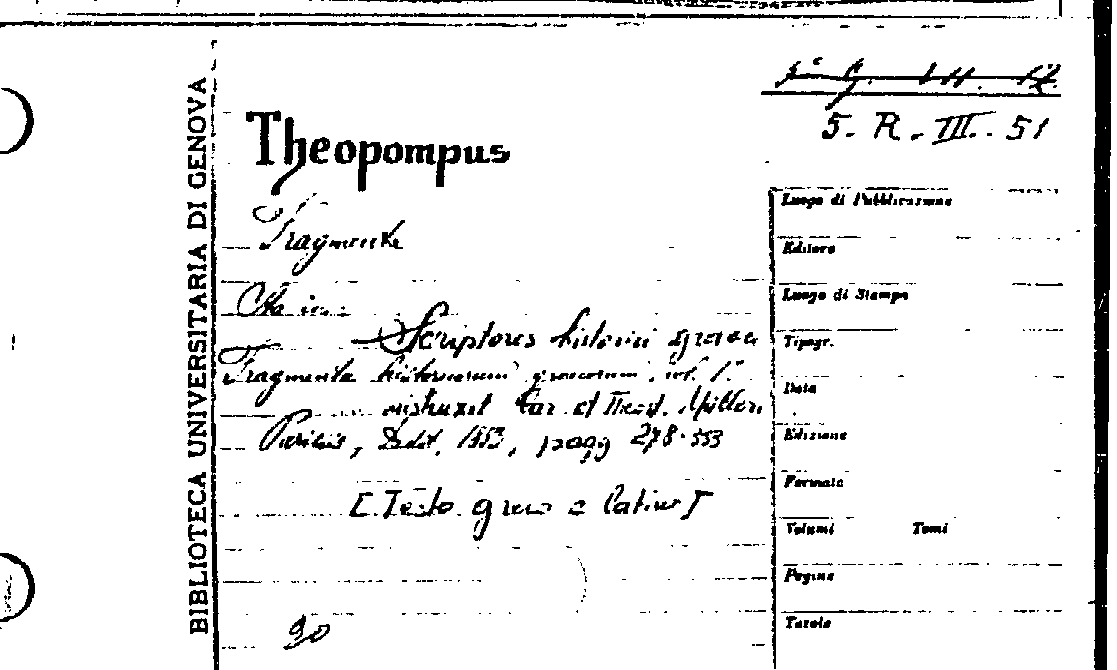 BIBLIOTECA UNIVERSITARIA DI GENOVA
5. R. III. 51
Theopompus
Fragmenta
Scriptores historici graeci
Fragmenta historicorum graecorum vol. I.
instruxit Car. et Theod. Müller.
Parisiis, Didot, 1853, pagg 278-333
[Testo greco e latino]
20
Luogo di Pubblicazione
Editore
Luogo di Stampa
Tipogr.
Data
Edizione
Formato
Volumi Tomi
Pagine
Tavole